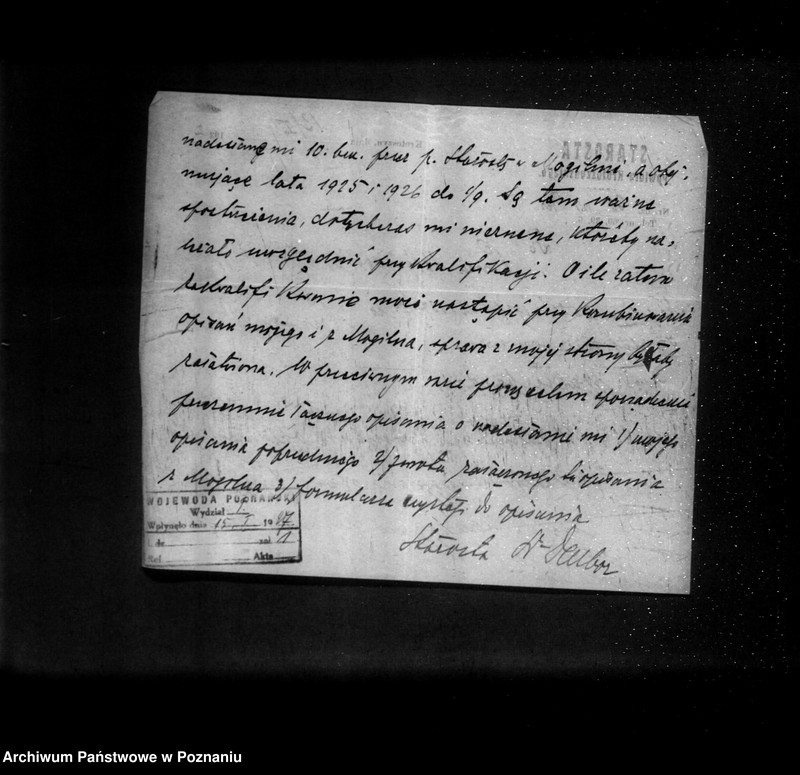 nadesłane mi 10. b.m. przez p. Starostę w Mogilnie, a obej-
mujące lata 1925 i 1926 do 1/9. Są tam ważne
spostrzeżenia, dotychczas mi nieznane, któreby na-
leżało uwzględnić przy kwalifikacji. O ile zatem
zakwalifikowanie może nastąpić przy
opisań mojego i z Mogilna, sprawa z mojej strony byłaby
załatwiona. W przeciwnym razie proszę celem sporządzenia
przezemnie łącznego opisania o nadesłanie mi 1/ mojego
opisania poprzedniego 2/ zwrotu załączonego tu opisania
z Mogilna 3/ formularze czyste do opisania
Starosta Dr
WOJEWODA POZNAŃSKI
Wydział I
Wpłynęło dnia 15. I 1927
L. dz. zał. 1
Ref. Akta
STAROSTA
Archiwum Państwowe w Poznaniu